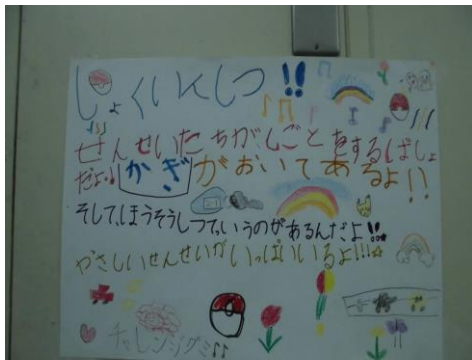 しょくいんしつ!!
せんせいたちがしごとをするばしょ
だよ!! かぎがおいてあるよ!!
そして、ほうそうしつていうのがあるんだよ!!
やさしいせんせいがいっぱいいるよ!!!
チャレンジグミ